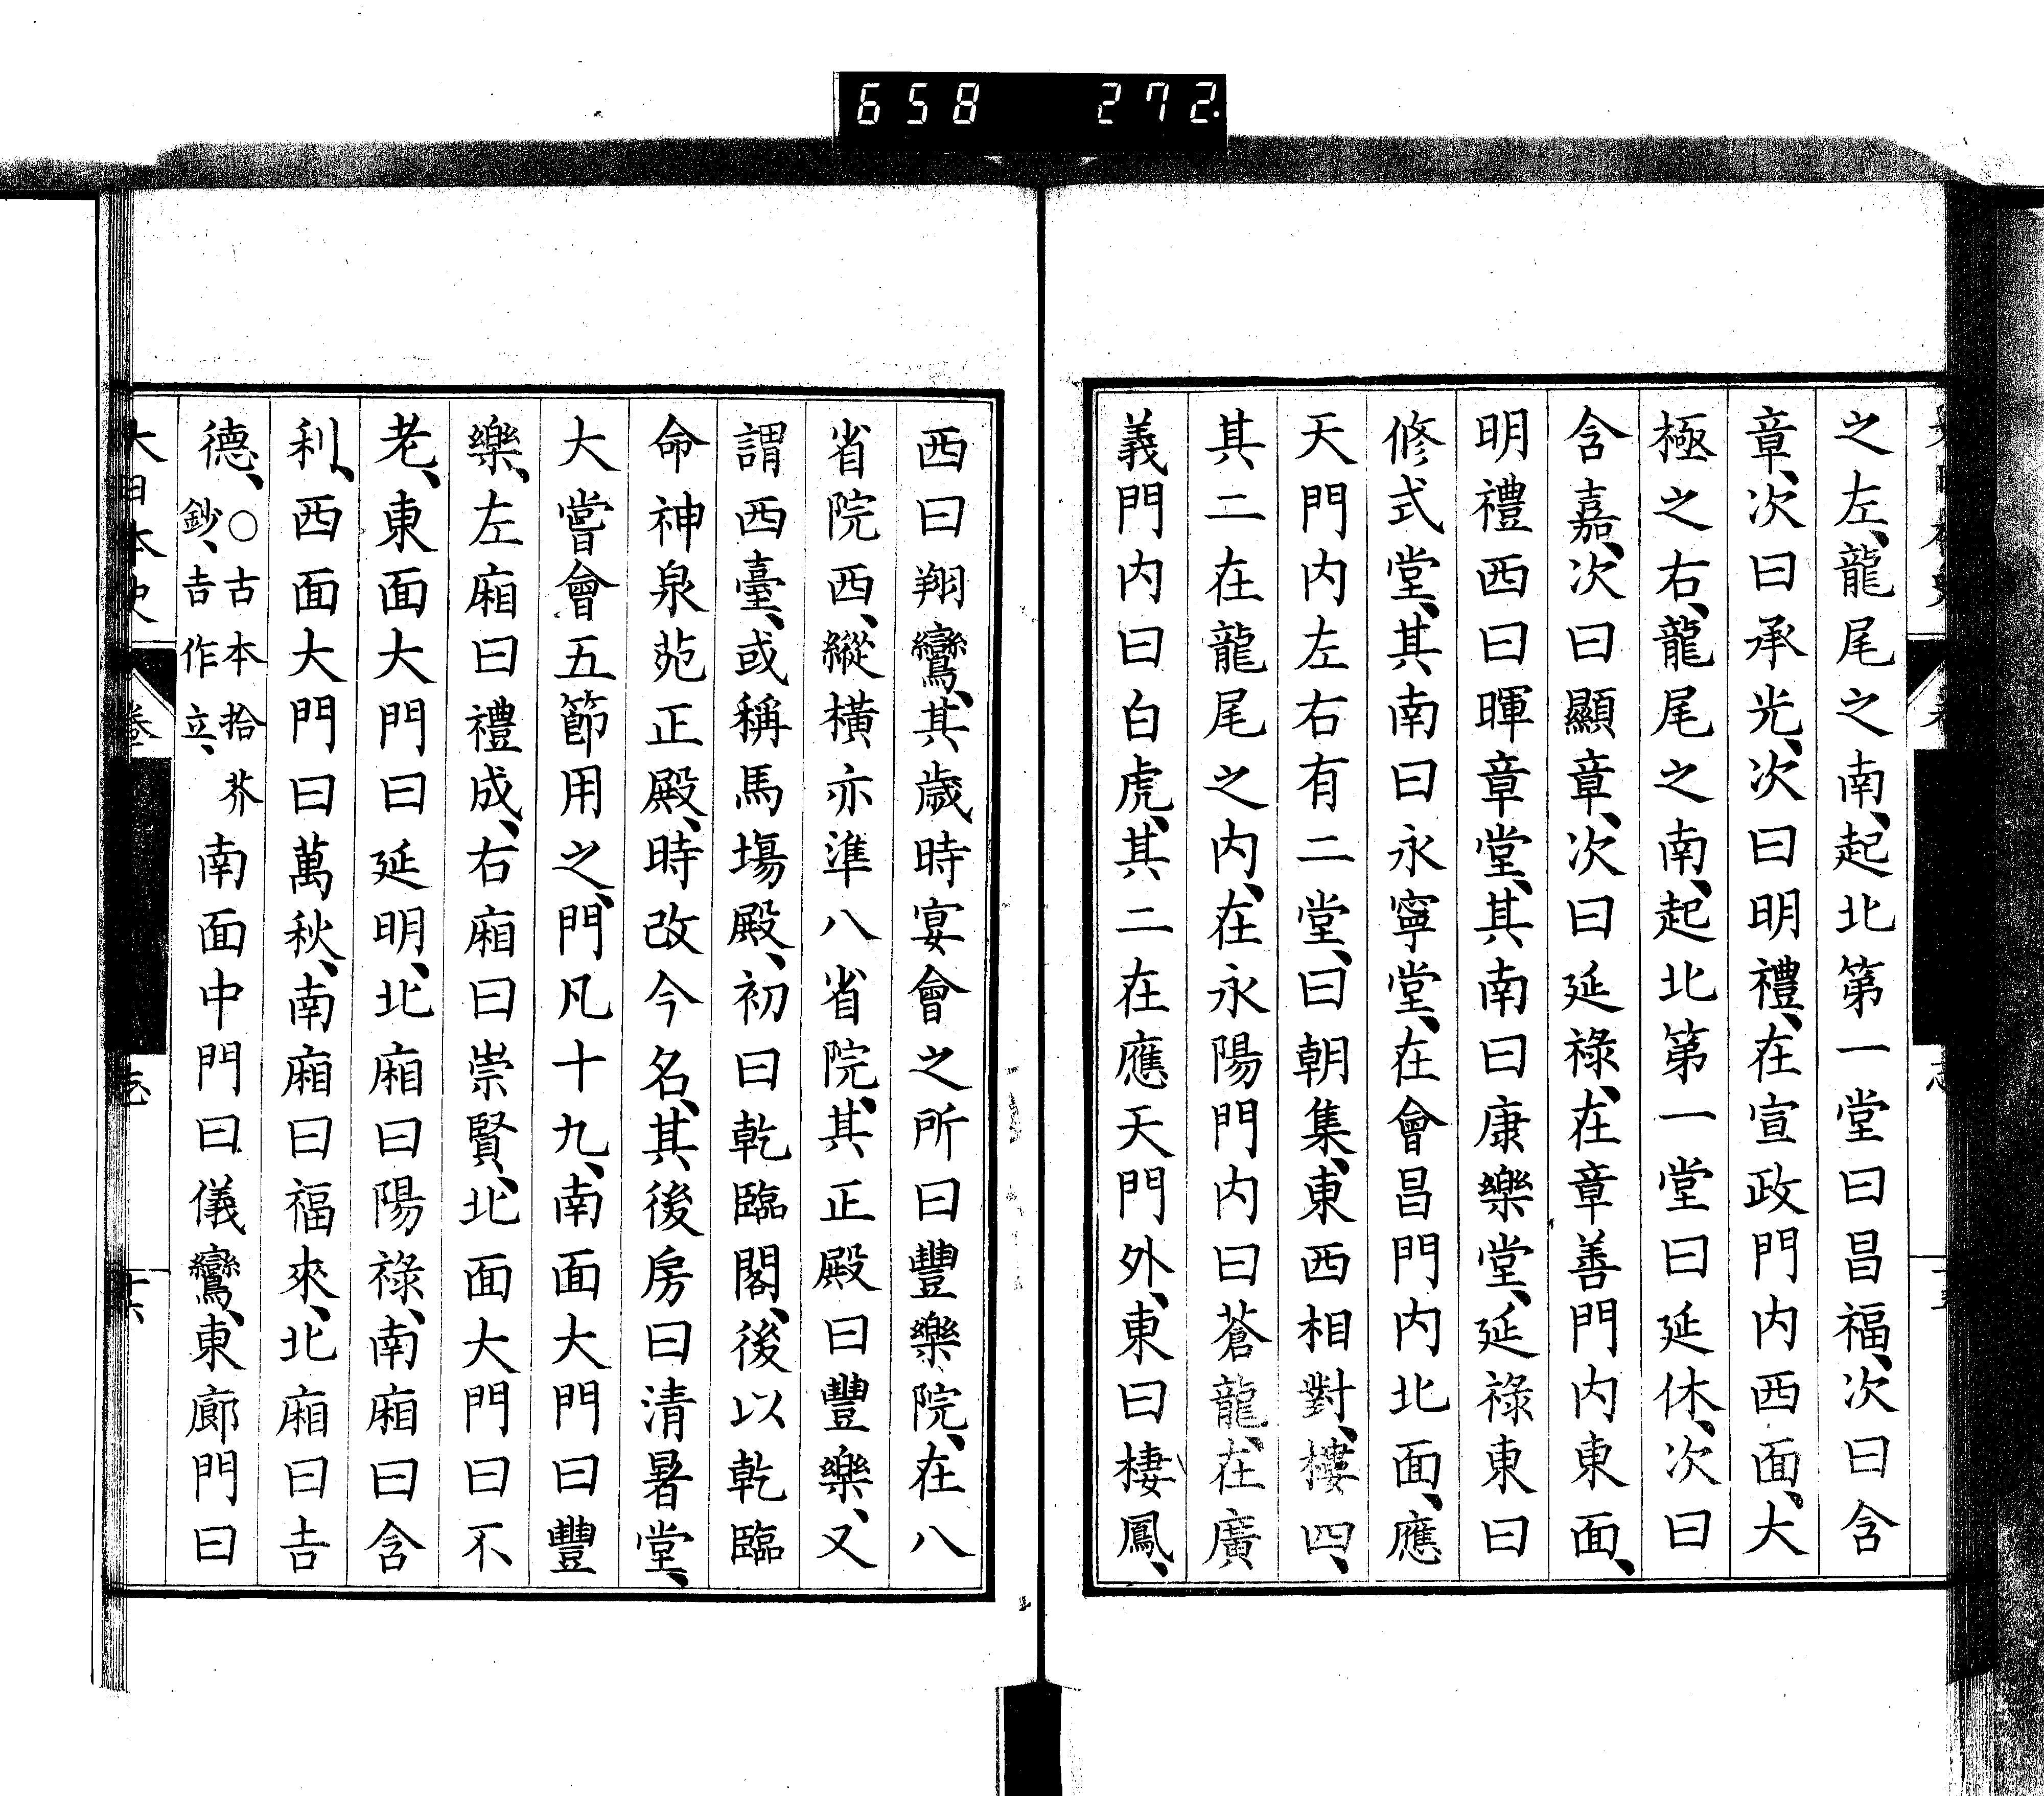 658 272
之左、龍尾之南、起北第一堂曰昌福、次曰含
章、次曰承光、次曰明禮、在宣政門内西面、大
極之右、龍尾之南、起北第一堂曰延休、次曰
含嘉、次曰顯章、次曰延祿、在章善門内東面、
明禮西曰暉章堂、其南曰康樂堂、延祿東曰
修式堂、其南曰永寧堂、在會昌門内北面、應
天門内左右有二堂、曰朝集、東西相對、樓四、
其二在龍尾之内、在永陽門内曰蒼龍、在廣
義門内曰白虎、其二在應天門外、東曰棲鳳、
西曰翔鸞、其歲時宴會之所曰豐樂院、在八
省院西、縱横亦準八省院、其正殿曰豐樂、又
謂西臺、或稱馬塲殿、初曰乾臨閣、後以乾臨
命神泉苑正殿、時改今名、其後房曰清暑堂、
大嘗會五節用之、門凡十九、南面大門曰豐
樂、左廂曰禮成、右廂曰崇賢、北面大門曰不
老、東面大門曰延明、北廂曰陽祿、南廂曰含
利、西面大門曰萬秋、南廂曰福來、北廂曰吉
德、○古本拾芥鈔、吉作立、南面中門曰儀鸞、東廊門曰
大日本史 卷 志 十六